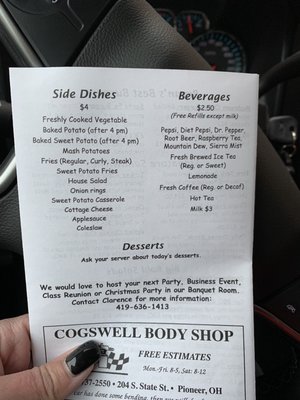 Side Dishes
$4
Freshly Cooked Vegetable
Baked Potato (after 4 pm)
Baked Sweet Potato (after 4 pm)
Mash Potatoes
Fries (Regular, Curly, Steak)
Sweet Potato Fries
House Salad
Onion rings
Sweet Potato Casserole
Cottage Cheese
Applesauce
Coleslaw
Beverages
$2.50
(Free Refills except milk)
Pepsi, Diet Pepsi, Dr. Pepper,
Root Beer, Raspberry Tea,
Mountain Dew, Sierra Mist
Fresh Brewed Ice Tea
(Reg. or Sweet)
Lemonade
Fresh Coffee (Reg. or Decaf)
Hot Tea
Milk $3
Desserts
Ask your server about today's desserts.
We would love to host your next Party, Business Event,
Class Reunion or Christmas Party in our Banquet Room.
Contact Clarence for more information:
419-636-1413
COGSWELL BODY SHOP
FREE ESTIMATES
Mon.-Fri. 8-5, Sat: 8-12
37-2550 • 204 S. State St. • Pioneer, OH
car has done some bending,